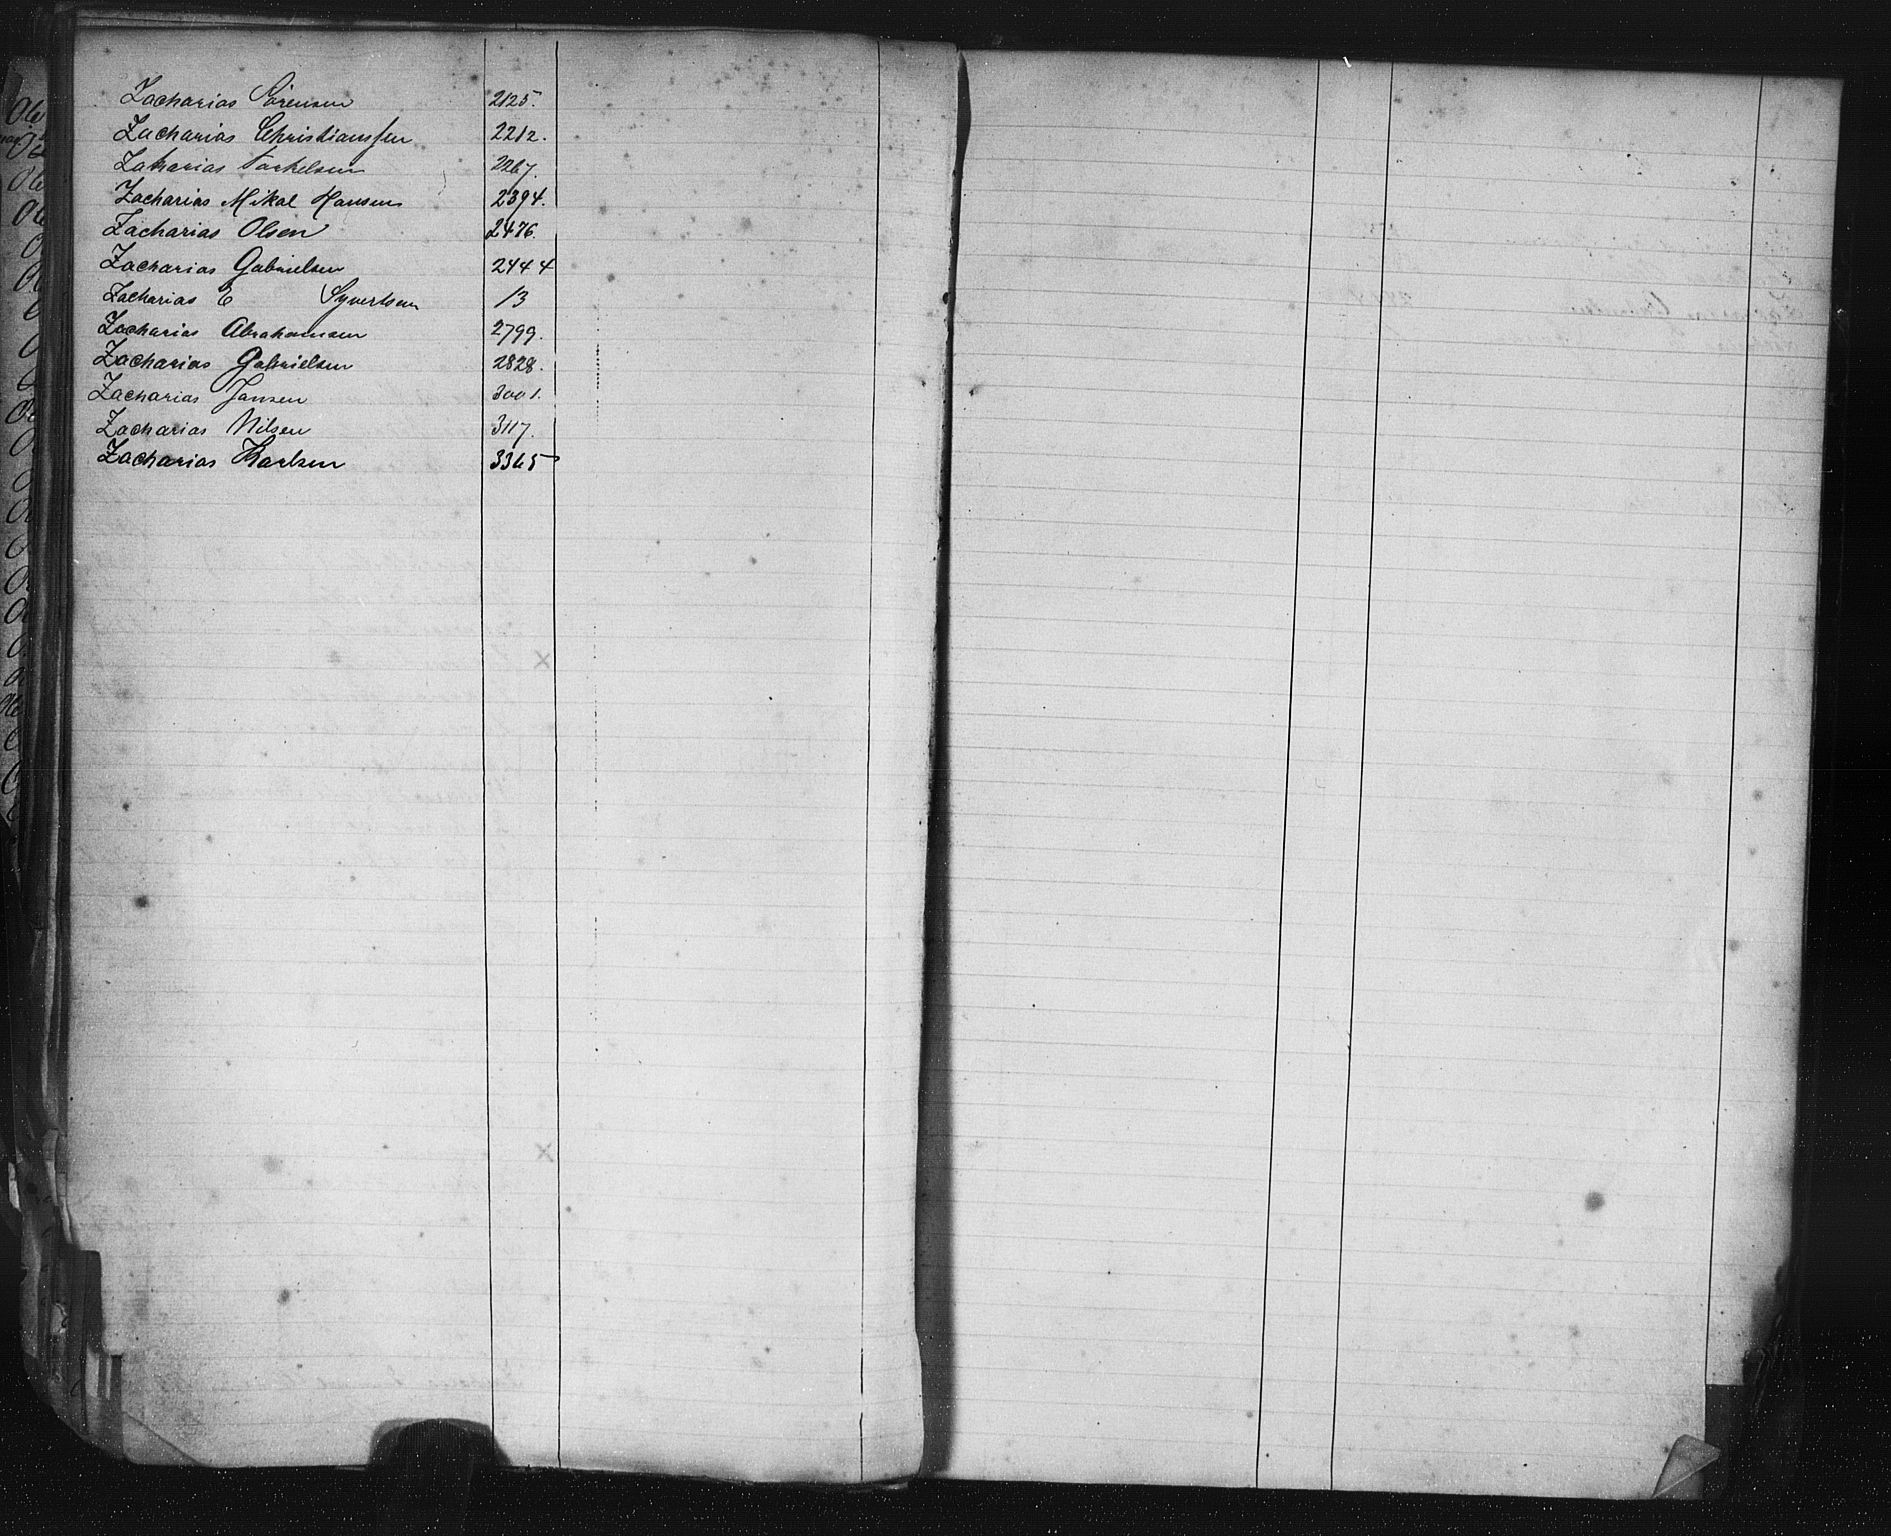 Zacharias Sørensen 2125.
Zacharias Christianssen 2212.
Zakarias Torkelsen 2267.
Zacharias Mikal Hansen 2394.
Zacharias Olsen 2476.
Zacharias Gabrielsen 2444
Zacharias E Syvertsen 13
Zacharias Abrahamsen 2799.
Zacharias Gabrielsen 2828.
Zacharias Jansen 3001.
Zacharias Nilsen 3117.
Zacharias Karlsen 3365